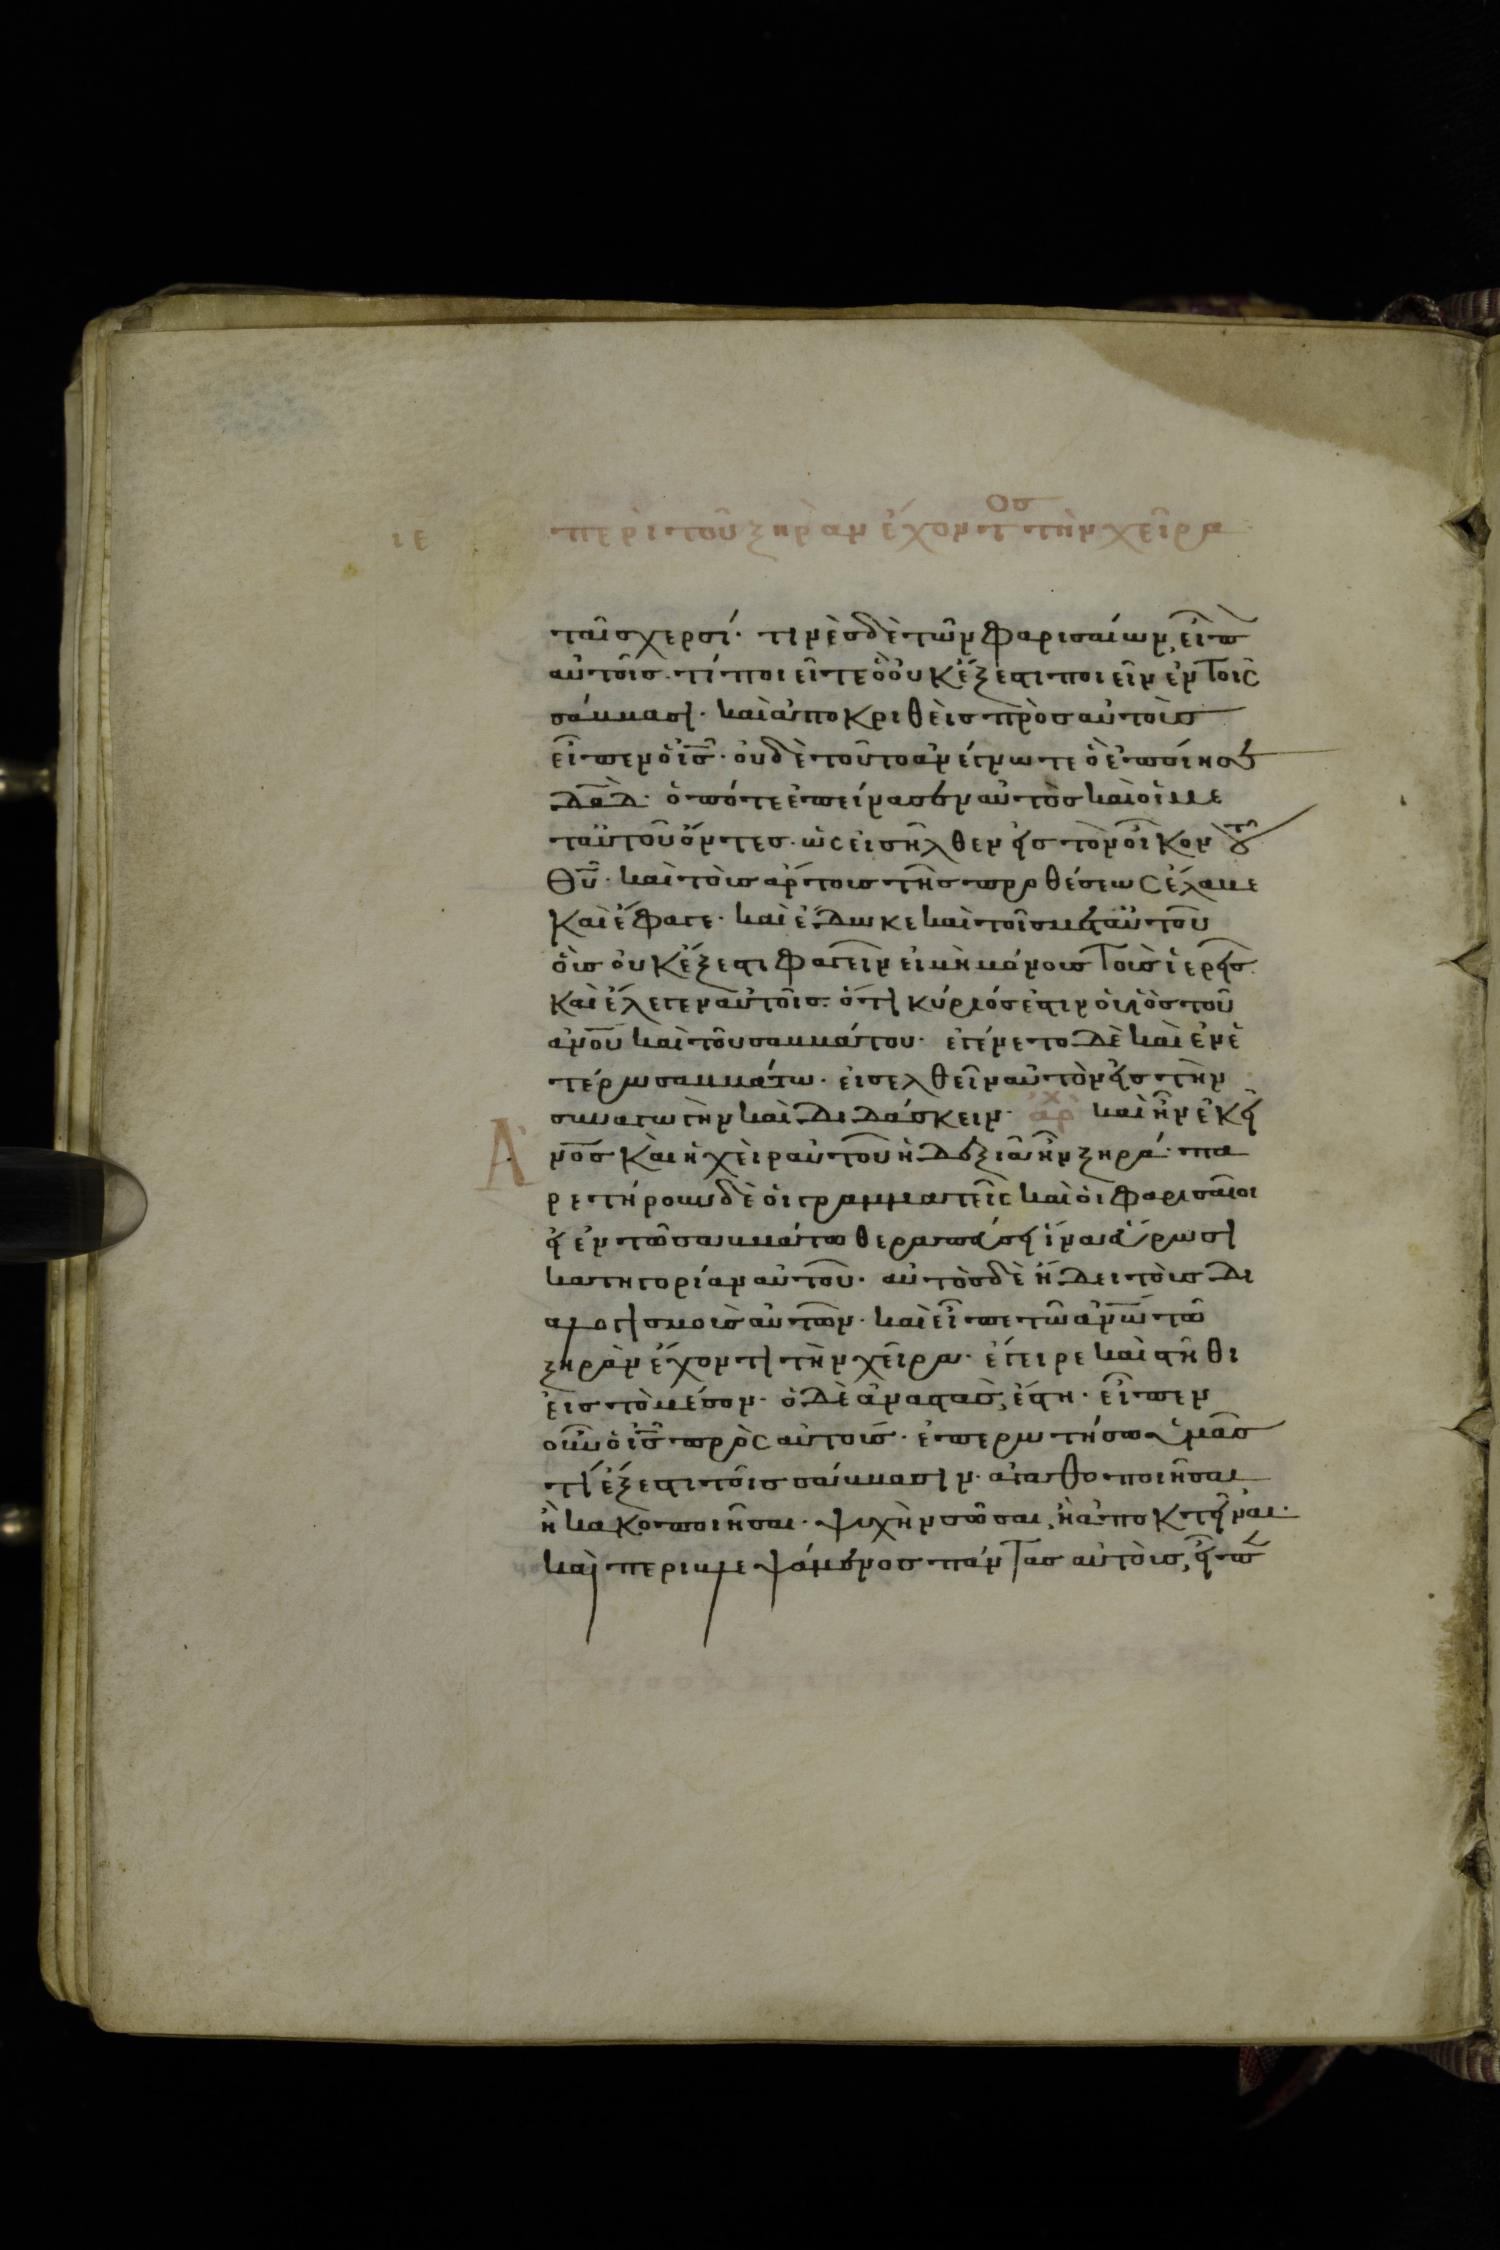 ος
ιε περὶ τοῦ ξηρὰν ἔχοντ τὴν χεῖρα
ταῖς χερσί· τινὲς δὲ τῶν φαρισαίων, εἶπ
αὐτοῖς· τί ποιεῖτε ὃ οὐκ ἔξεστι ποιεῖν ἐν τοῖς
σάββασι· καὶ ἀποκριθεὶς πρὸς αὐτοὺς
εἶπεν ὁ ις· οὐδὲ τοῦτο ἀνέγνωτε ὃ ἐποίησεν
δαδ· ὁπότε ἐπείνασεν αὐτὸς καὶ οἱ με
τ αὐτοῦ ὄντες· ὡς εἰσῆλθεν εἰς τὸν οἶκον τοῦ
θυ· καὶ τοὺς ἄρτους τῆς προθέσεως ἔλαβε
καὶ ἔφαγε· καὶ ἔδωκε καὶ τοῖς μετ αὐτοῦ
οὓς οὐκ ἔξεστι φαγεῖν εἰ μὴ μόνους τοὺς ἱερεῖς·
καὶ ἔλεγεν αὐτοῖς· ὅτι κύριός ἐστιν ὁ υἱὸς τοῦ
ανου καὶ τοῦ σαββάτου· ἐγένετο δὲ καὶ ἐν ἑ
τέρω σαββάτω· εἰσελθεῖν αὐτὸν εἰς τὴν
συναγωγὴν καὶ διδάσκειν· ἀρχ καὶ ἦν ἐκεῖ
Α ανος καὶ ἡ χεὶρ αὐτοῦ ἡ δεξιὰ ἦν ξηρά· πα
ρετήρουν δὲ οἱ γραμματεῖς καὶ οἱ φαρισαῖοι
εἰ ἐν τῶ σαββάτω θεραπεύσει ἵνα εὕρωσι
κατηγορίαν αὐτοῦ· αὐτὸς δὲ ᾔδει τοὺς δι
αλογισμοὺς αὐτῶν· καὶ εἶπε τῶ ανω τῶ
ξηρὰν ἔχοντι τὴν χεῖρα· ἔγειρε καὶ στῆθι
εἰς τὸ μέσον· ὁ δὲ ἀναστὰς, ἔστη· εἶπεν
οὖν ὁ ις πρὸς αὐτούς· ἐπερωτήσω ὑμᾶς
τί ἔξεστι τοῖς σάββασιν· ἀγαθοποιῆσαι
ἢ κακοποιῆσαι· ψυχὴν σῶσαι, ἢ ἀποκτεῖναι·
καὶ περιβλεψάμενος πάντας αὐτοὺς, εἶπ